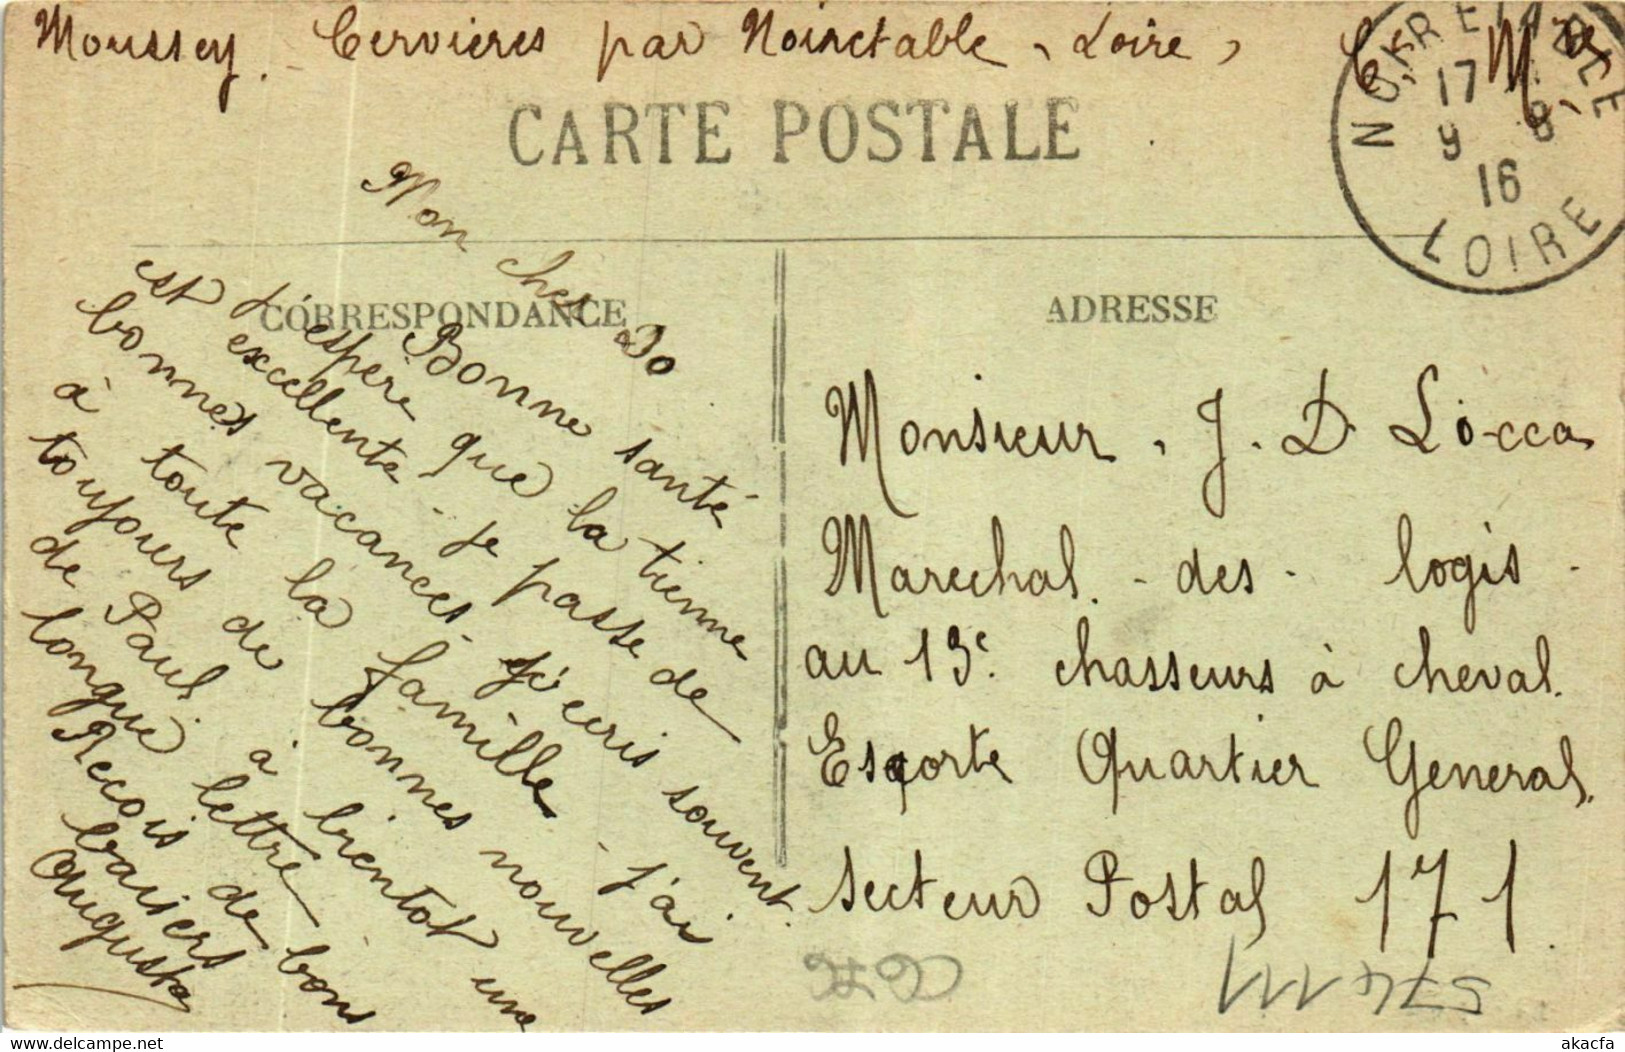 Moussey. - Cervieres par Noiretable, Loire,
NOIRETABLE
17
9 8
16
LOIRE
CARTE POSTALE
CORRESPONDANCE
ADRESSE
Mon cher Do
Bonne santé
j'espère que la tienne
est excellente - je passe de
bonnes vacances. J'écris souvent.
à toute la famille - j'ai
toujours de bonnes nouvelles
de Paul. à bientot une
longue lettre
Recois de bons
baisers
Augusta
Monsieur. J. D Locca
Marechal. des logis
au 13e. chasseurs à cheval.
Escorte Quartier General.
Secteur Postal 171.
CC76
574111
akacfa